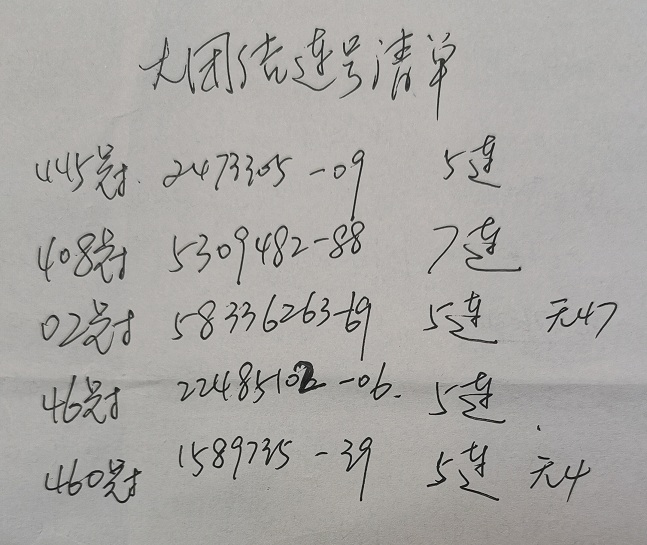 大团结连号清单
445冠 2473305-09 5连
408冠 5309482-88 7连
02冠 58336263-69 5连 无47
46冠 22485102-06. 5连
460冠 1589735-39 5连 无4